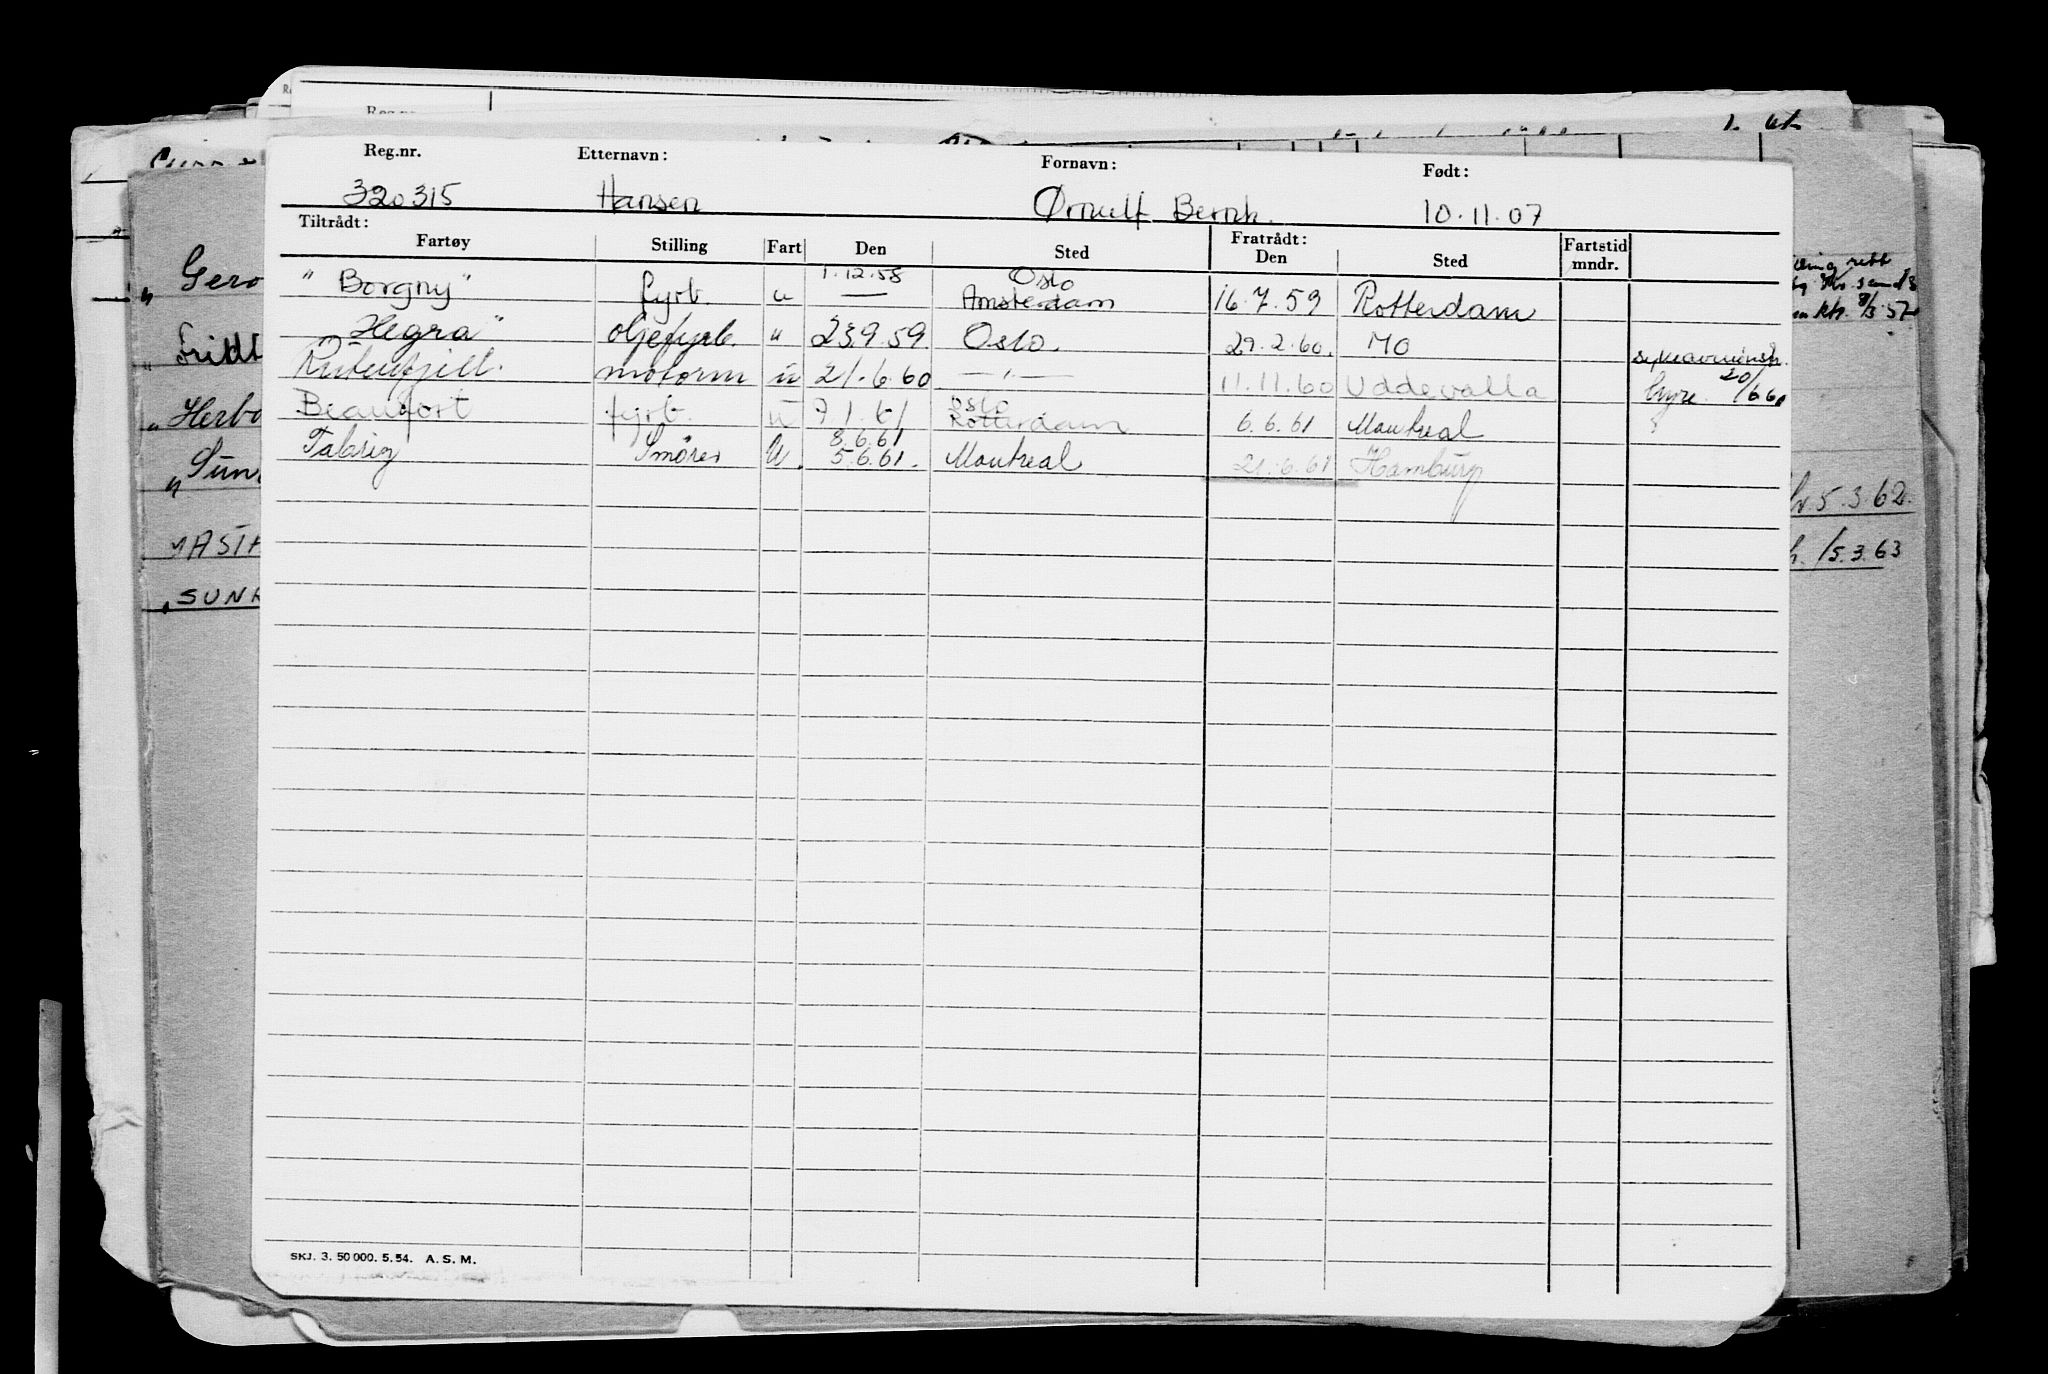 Reg.nr. Etternavn: Fornavn: Født:
320315 Hansen Ørnulf Bernh. 10.11.07
Tiltrådt: Fratrådt:
Fartøy Stilling Fart Den Sted Den Sted Fartstid mndr.
1.12.58 Oslo
"Borgny" fyrb. u — Amsterdam 16.7.59 Rotterdam
"Hegra" oljefyrb. " 23.9.59. Oslo. 29.2.60. MO
Rutenfjell. motorm u 21.6.60 —"— 11.11.60 Uddevalla hyre 20/6 60
Oslo
Beaufort fyrb. u 7.1.61 Rotterdam 6.6.61 Montreal
8.6.61
Tabriz Smører U. 5.6.61. Montreal 21.6.61 Hamburg
SKJ. 3. 50 000. 5. 54. A. S. M.
"Gero
"Herbo
"SUN
5.3.62.
/5.3.63